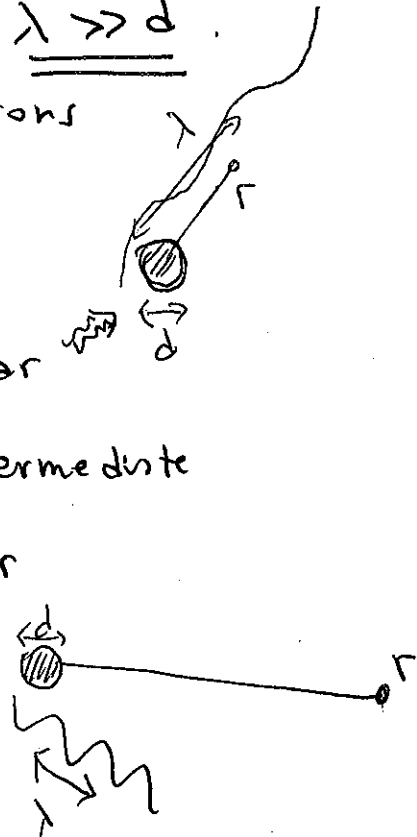 λ >> d .
rons
λ
r
d
ar
ermediate
r
d
r
λ